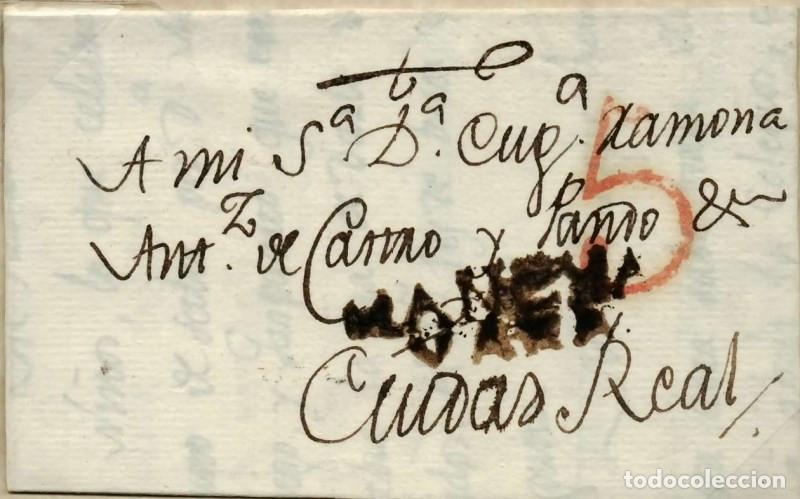 A mi Sᵃ Dᵃ. Eugᵃ. Ramona
Antᶻ. de Castro y Pando &
5
Ciudad Real
todocoleccion